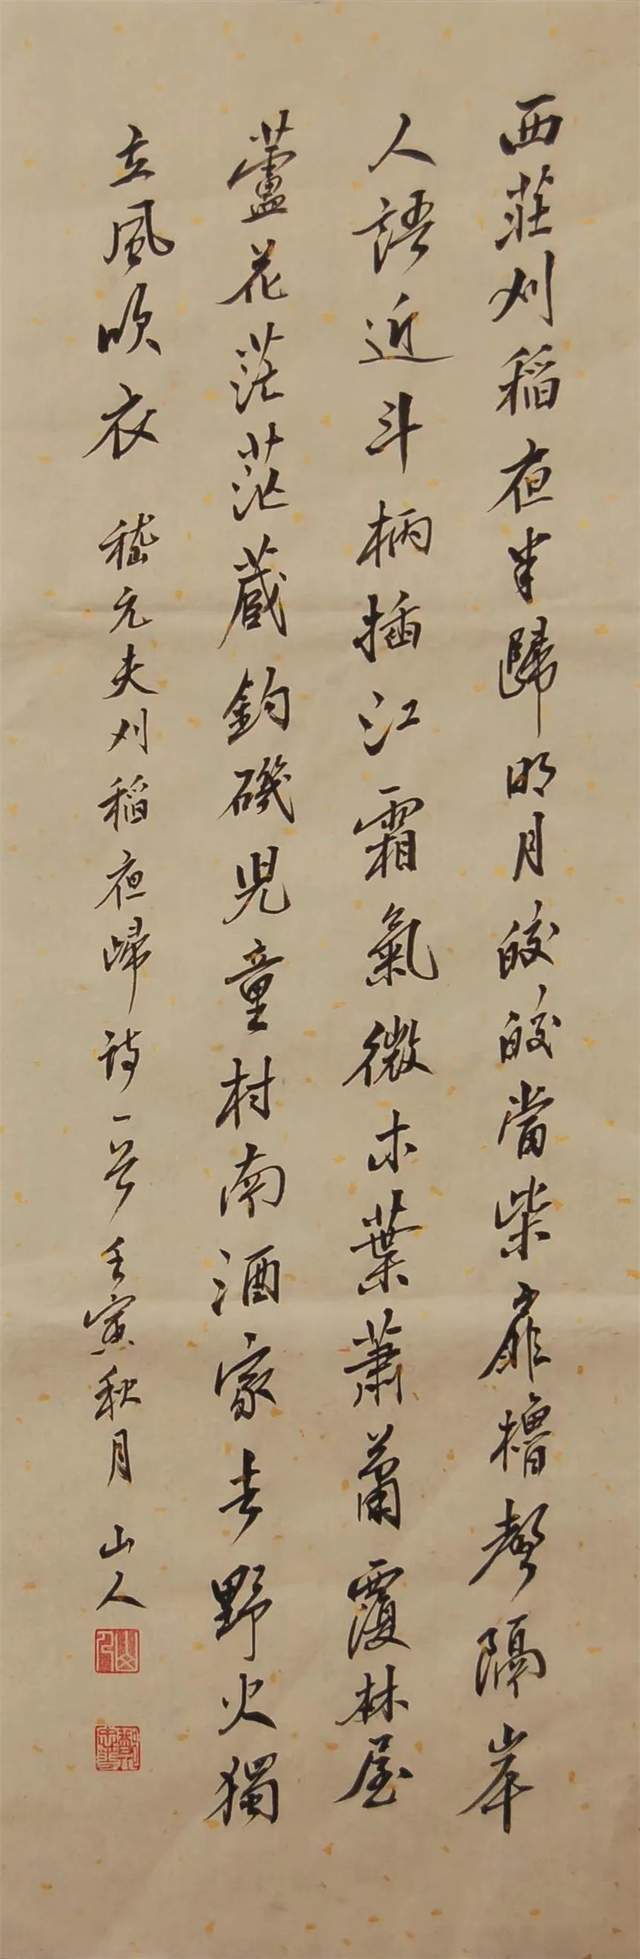 西莊刈稻夜半歸明月皎皎當柴扉櫓聲隔岸
人語近斗柄插江霜氣微木葉蕭蕭覆林屋
蘆花茫茫藏釣磯兒童村南酒家去野火獨
立風吹衣
嵇元夫刈稻夜歸詩一首壬寅秋月山人